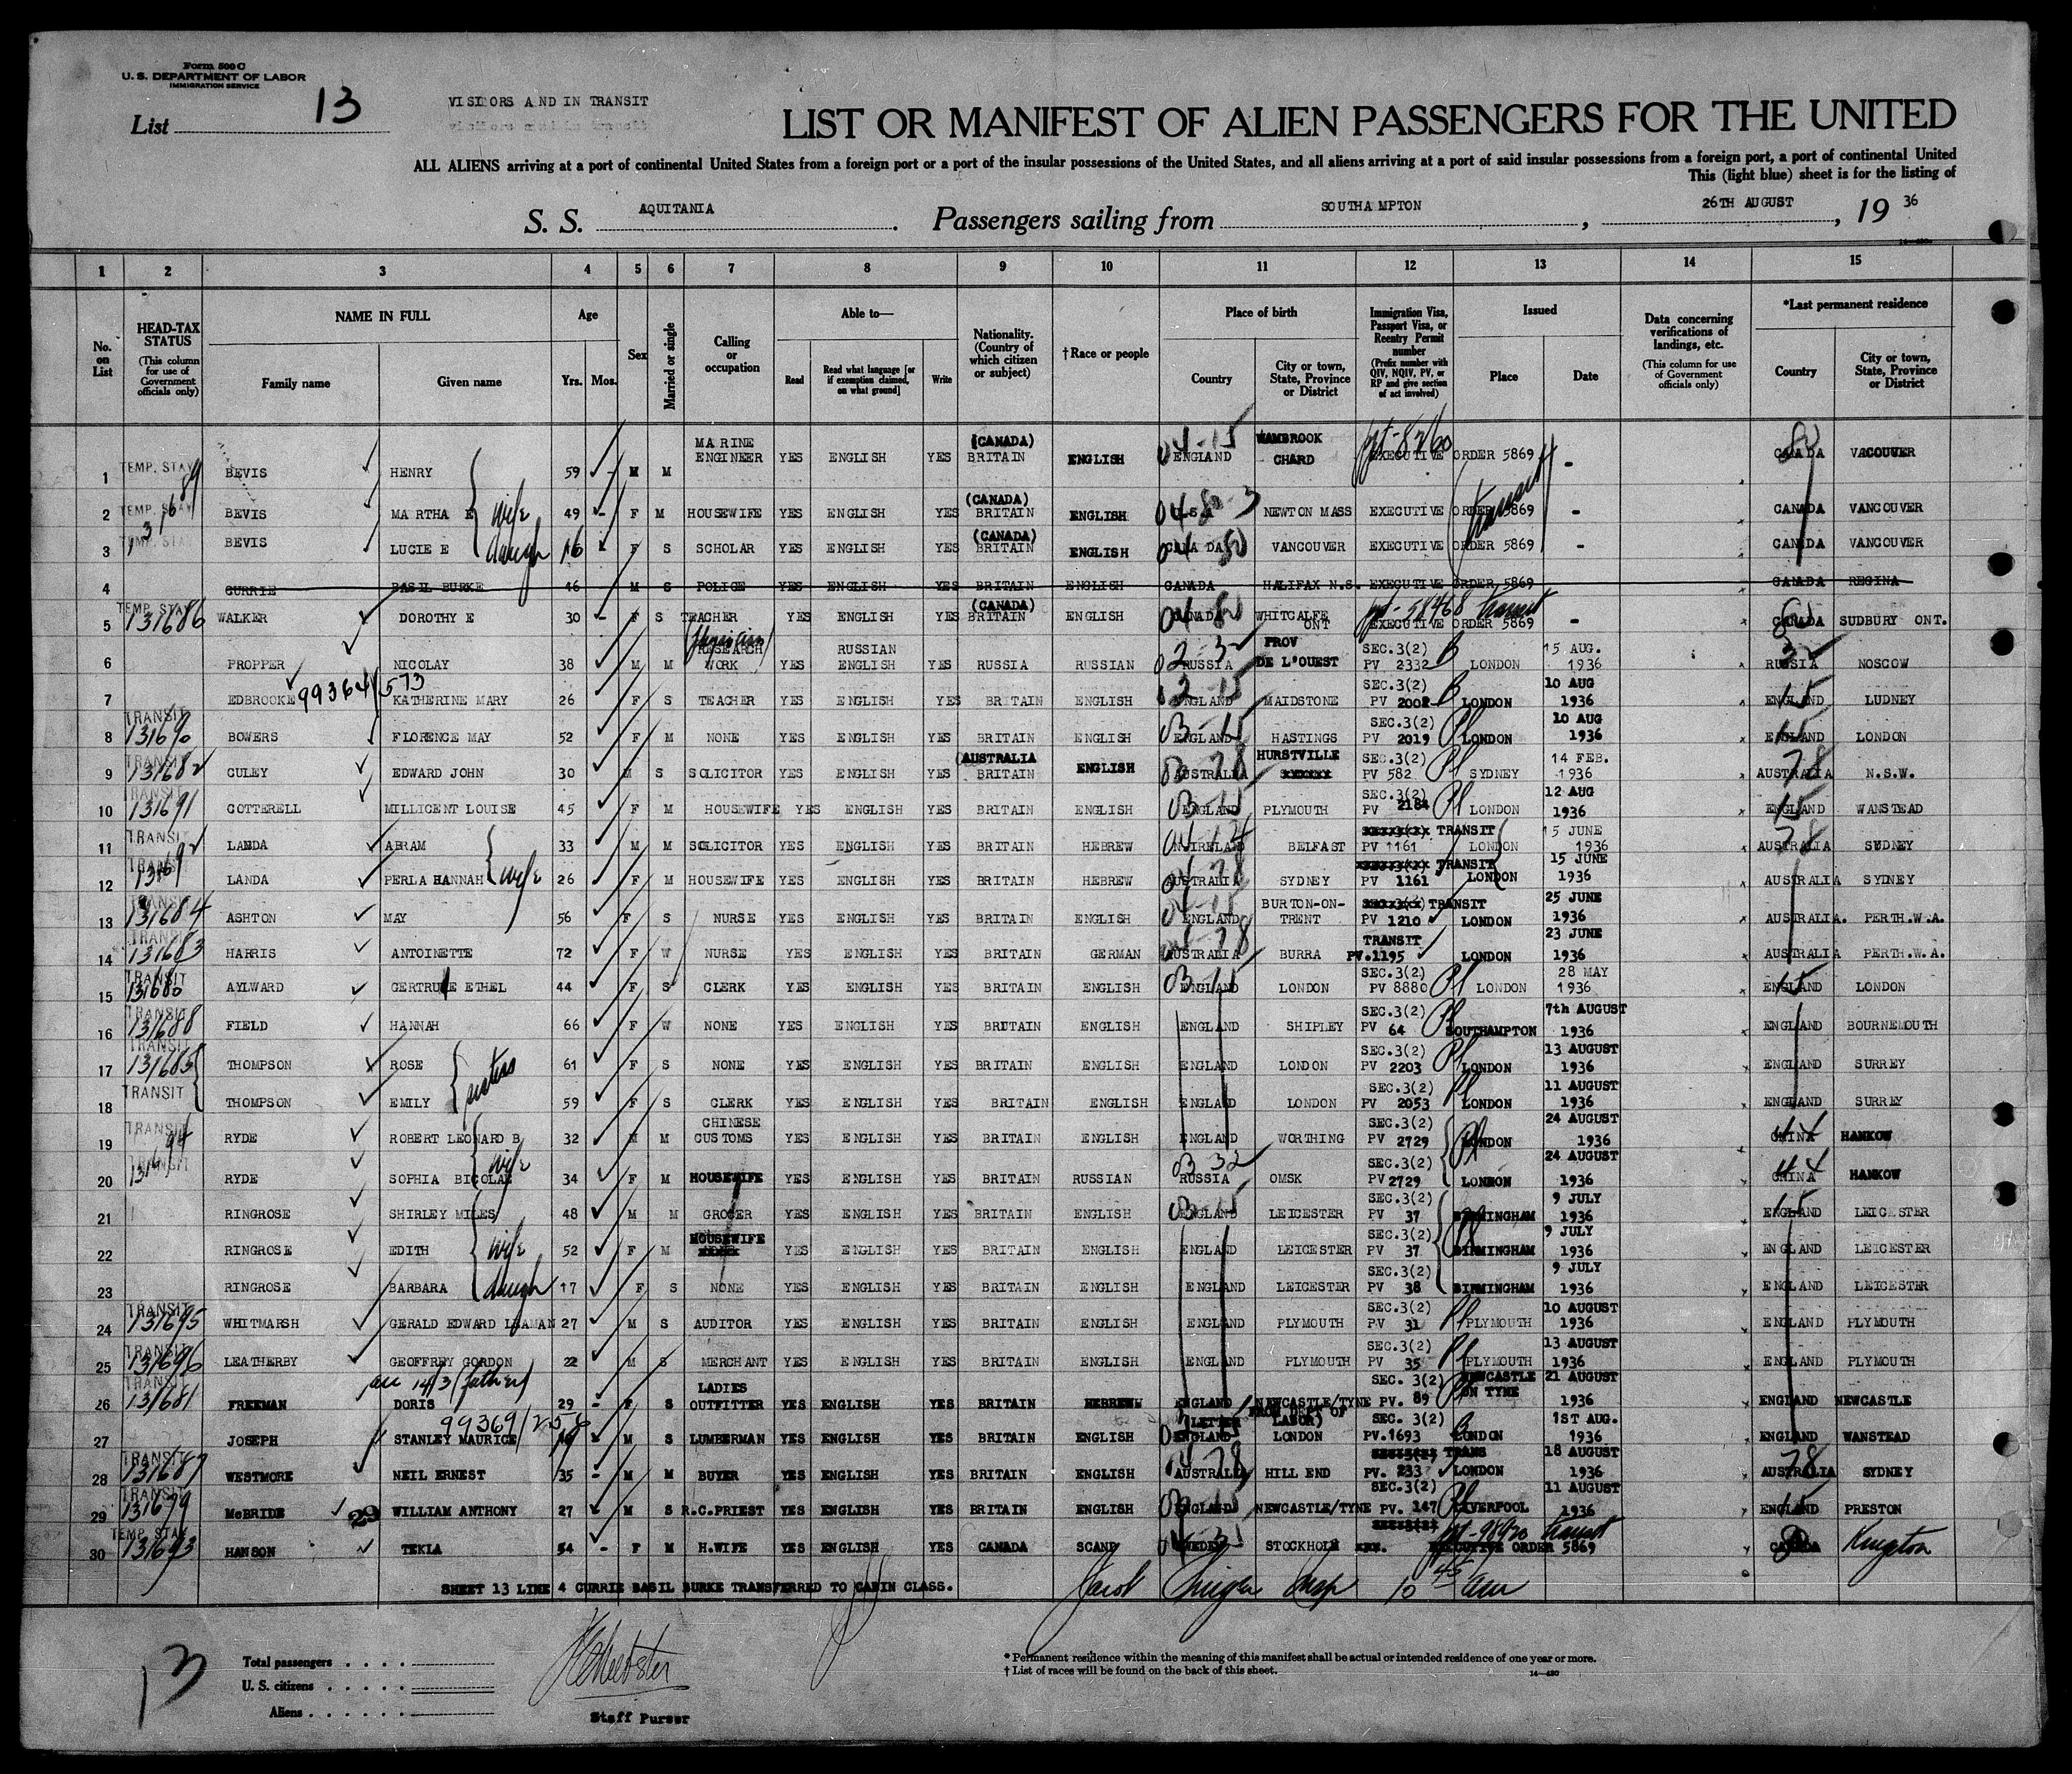 Form 500 C
U. S. DEPARTMENT OF LABOR
IMMIGRATION SERVICE
List 13
VISITORS AND IN TRANSIT
LIST OR MANIFEST OF ALIEN PASSENGERS FOR THE UNITED
ALL ALIENS arriving at a port of continental United States from a foreign port or a port of the insular possessions of the United States, and all aliens arriving at a port of said insular possessions from a foreign port, a port of continental United
This (light blue) sheet is for the listing of
S. S. AQUITANIA. Passengers sailing from SOUTHAMPTON, 26TH AUGUST, 19 36
1 2 3 4 5 6 7 8 9 10 11 12 13 14 15
No. on List
HEAD-TAX STATUS (This column for use of Government officials only)
NAME IN FULL Family name Given name
Age Yrs. Mos.
Sex
Married or single
Calling or occupation
Able to— Read Read what language [or if exemption claimed, on what ground] Write
Nationality. (Country of which citizen or subject)
† Race or people
Place of birth Country City or town, State, Province or District
Immigration Visa, Passport Visa, or Reentry Permit number (Prefix number with QIV, NQIV, PV, or RP and give section of act involved)
Issued Place Date
Data concerning verifications of landings, etc. (This column for use of Government officials only)
*Last permanent residence Country City or town, State, Province or District
1 TEMP. STAY BEVIS HENRY 59 M M MARINE ENGINEER YES ENGLISH YES (CANADA) BRITAIN ENGLISH 04-15 ENGLAND WAMBROOK CHARD EXECUTIVE ORDER 5869 - CANADA VACOUVER
2 TEMP. STAY BEVIS MARTHA E wife 49 - F M HOUSEWIFE YES ENGLISH YES (CANADA) BRITAIN ENGLISH U.S.A NEWTON MASS EXECUTIVE ORDER 5869 transit - CANADA VANCOUVER
3 TEMP. STAY BEVIS LUCIE E daugh 16 F S SCHOLAR YES ENGLISH YES (CANADA) BRITAIN ENGLISH 04-80 CANADA VANCOUVER EXECUTIVE ORDER 5869 - CANADA VANCOUVER
4 CURRIE BASIL BURKE 46 M S POLICE YES ENGLISH YES BRITAIN ENGLISH CANADA HALIFAX N.S. EXECUTIVE ORDER 5869 CANADA REGINA
5 TEMP. STAY 131686 WALKER DOROTHY E 30 - F S TEACHER YES ENGLISH YES (CANADA) BRITAIN ENGLISH 04-80 CANADA WHITCALFE ONT EXECUTIVE ORDER 5869 transit - CANADA SUDBURY ONT.
6 PROPPER NICOLAY 38 M M (physician) RESEARCH WORK YES RUSSIAN ENGLISH YES RUSSIA RUSSIAN RUSSIA PROV DE L'OUEST SEC.3(2) PV 2332 B LONDON 15 AUG. 1936 RUSSIA MOSCOW
7 EDBROOKE 99364/573 KATHERINE MARY 26 F S TEACHER YES ENGLISH YES BRITAIN ENGLISH ENGLAND MAIDSTONE SEC.3(2) PV 2002 B LONDON 10 AUG 1936 15 ENGLAND LUDNEY
8 TRANSIT 131690 BOWERS FLORENCE MAY 52 F M NONE YES ENGLISH YES BRITAIN ENGLISH 03-15 ENGLAND HASTINGS SEC.3(2) PV 2019 Pl LONDON 10 AUG 1936 15 ENGLAND LONDON
9 TRANSIT 131682 CULEY EDWARD JOHN 30 M S SOLICITOR YES ENGLISH YES (AUSTRALIA BRITAIN ENGLISH AUSTRALIA HURSTVILLE SEC.3(2) PV 582 Pl SYDNEY 14 FEB. 1936 78 AUSTRALIA N.S.W.
10 TRANSIT 131691 COTTERELL MILLICENT LOUISE 45 F M HOUSEWIFE YES ENGLISH YES BRITAIN ENGLISH 03-15 ENGLAND PLYMOUTH SEC.3(2) PV 2184 Pl LONDON 12 AUG 1936 15 ENGLAND WANSTEAD
11 TRANSIT LANDA ABRAM 33 M M SOLICITOR YES ENGLISH YES BRITAIN HEBREW N.IRELAND BELFAST TRANSIT PV 1161 LONDON 15 JUNE 1936 78 AUSTRALIA SYDNEY
12 TRANSIT LANDA PERLA HANNAH wife 26 F M HOUSEWIFE YES ENGLISH YES BRITAIN HEBREW 04-78 AUSTRALIA SYDNEY TRANSIT PV 1161 LONDON 15 JUNE 1936 AUSTRALIA SYDNEY
13 TRANSIT 131684 ASHTON MAY 56 F S NURSE YES ENGLISH YES BRITAIN ENGLISH 04-15 ENGLAND BURTON-ON-TRENT TRANSIT PV 1210 LONDON 25 JUNE 1936 AUSTRALIA. PERTH.W.A.
14 TRANSIT 131683 HARRIS ANTOINETTE 72 F W NURSE YES ENGLISH YES BRITAIN GERMAN 04-78 AUSTRALIA BURRA TRANSIT PV.1195 LONDON 23 JUNE 1936 AUSTRALIA PERTH.W.A.
15 TRANSIT 131680 AYLWARD GERTRUDE ETHEL 44 F S CLERK YES ENGLISH YES BRITAIN ENGLISH 03-15 ENGLAND LONDON SEC.3(2) PV 8880 Pl LONDON 28 MAY 1936 15 ENGLAND LONDON
16 TRANSIT 131688 FIELD HANNAH 66 F W NONE YES ENGLISH YES BRITAIN ENGLISH ENGLAND SHIPLEY SEC.3(2) PV 64 Pl SOUTHAMPTON 7th AUGUST 1936 ENGLAND BOURNEMOUTH
17 TRANSIT 131685 THOMPSON ROSE sisters 61 F S NONE YES ENGLISH YES BRITAIN ENGLISH ENGLAND LONDON SEC.3(2) PV 2203 Pl LONDON 13 AUGUST 1936 ENGLAND SURREY
18 TRANSIT THOMPSON EMILY 59 F S CLERK YES ENGLISH YES BRITAIN ENGLISH ENGLAND LONDON SEC.3(2) PV 2053 Pl LONDON 11 AUGUST 1936 ENGLAND SURREY
19 TRANSIT RYDE ROBERT LEONARD B 32 M M CHINESE CUSTOMS YES ENGLISH YES BRITAIN ENGLISH ENGLAND WORTHING SEC.3(2) PV 2729 Pl LONDON 24 AUGUST 1936 44 CHINA HANKOW
20 TRANSIT 131694 RYDE SOPHIA BICOLAE wife 34 F M HOUSEWIFE YES ENGLISH YES BRITAIN RUSSIAN 03 32 RUSSIA OMSK SEC.3(2) PV 2729 LONDON 24 AUGUST 1936 44 CHINA HANKOW
21 RINGROSE SHIRLEY MILES 48 M M GROCER YES ENGLISH YES BRITAIN ENGLISH 03-15 ENGLAND LEICESTER SEC.3(2) PV 37 BIRMINGHAM 9 JULY 1936 15 ENGLAND LEICESTER
22 RINGROSE EDITH wife 52 F M HOUSEWIFE YES ENGLISH YES BRITAIN ENGLISH ENGLAND LEICESTER SEC.3(2) PV 37 Pl BIRMINGHAM 9 JULY 1936 ENGLAND LEICESTER
23 RINGROSE BARBARA daugh 17 F S NONE YES ENGLISH YES BRITAIN ENGLISH ENGLAND LEICESTER SEC.3(2) PV 38 BIRMINGHAM 9 JULY 1936 ENGLAND LEICESTER
24 TRANSIT 131695 WHITMARSH GERALD EDWARD LEAMAN 27 M S AUDITOR YES ENGLISH YES BRITAIN ENGLISH ENGLAND PLYMOUTH SEC.3(2) PV 31 Pl PLYMOUTH 10 AUGUST 1936 ENGLAND PLYMOUTH
25 TRANSIT 131696 LEATHERBY GEOFFREY GORDON 22 M S MERCHANT YES ENGLISH YES BRITAIN ENGLISH ENGLAND PLYMOUTH SEC.3(2) PV 35 Pl PLYMOUTH 13 AUGUST 1936 ENGLAND PLYMOUTH
26 TRANSIT 131681 FREEMAN DORIS (father) 29 - F S LADIES OUTFITTER YES ENGLISH YES BRITAIN HEBREW ENGLAND NEWCASTLE/TYNE SEC. 3(2) PV. 89 Pl NEWCASTLE ON TYNE 21 AUGUST 1936 ENGLAND NEWCASTLE
27 JOSEPH 99369/258 STANLEY MAURICE 19 M S LUMBERMAN YES ENGLISH YES BRITAIN ENGLISH (LETTER FROM DEPT OF LABOR) ENGLAND LONDON SEC. 3(2) PV.1693 B LONDON 1ST AUG. 1936 ENGLAND WANSTEAD
28 TRANSIT 131687 WESTMORE NEIL ERNEST 35 - M M BUYER YES ENGLISH YES BRITAIN ENGLISH 04-78 AUSTRALIA HILL END TRANS PV. 233 LONDON 18 AUGUST 1936 78 AUSTRALIA SYDNEY
29 TRANSIT 131679 McBRIDE 29 WILLIAM ANTHONY 27 M S R.C.PRIEST YES ENGLISH YES BRITAIN ENGLISH 03-15 ENGLAND NEWCASTLE/TYNE SEC.3(2) PV. 147 Pl LIVERPOOL 11 AUGUST 1936 15 ENGLAND PRESTON
30 TEMP. STAY 131693 HANSON TEKLA 54 - F M H.WIFE YES ENGLISH YES CANADA SCAND SWEDEN STOCKHOLM EXECUTIVE ORDER 5869 transit CANADA Kingston
SHEET 13 LINE 4 CURRIE BASIL BURKE TRANSFERRED TO CABIN CLASS.
Jacob Insp 10 45 am
13
Total passengers
U. S. citizens
Aliens
Staff Purser
* Permanent residence within the meaning of this manifest shall be actual or intended residence of one year or more.
† List of races will be found on the back of this sheet.
14—480